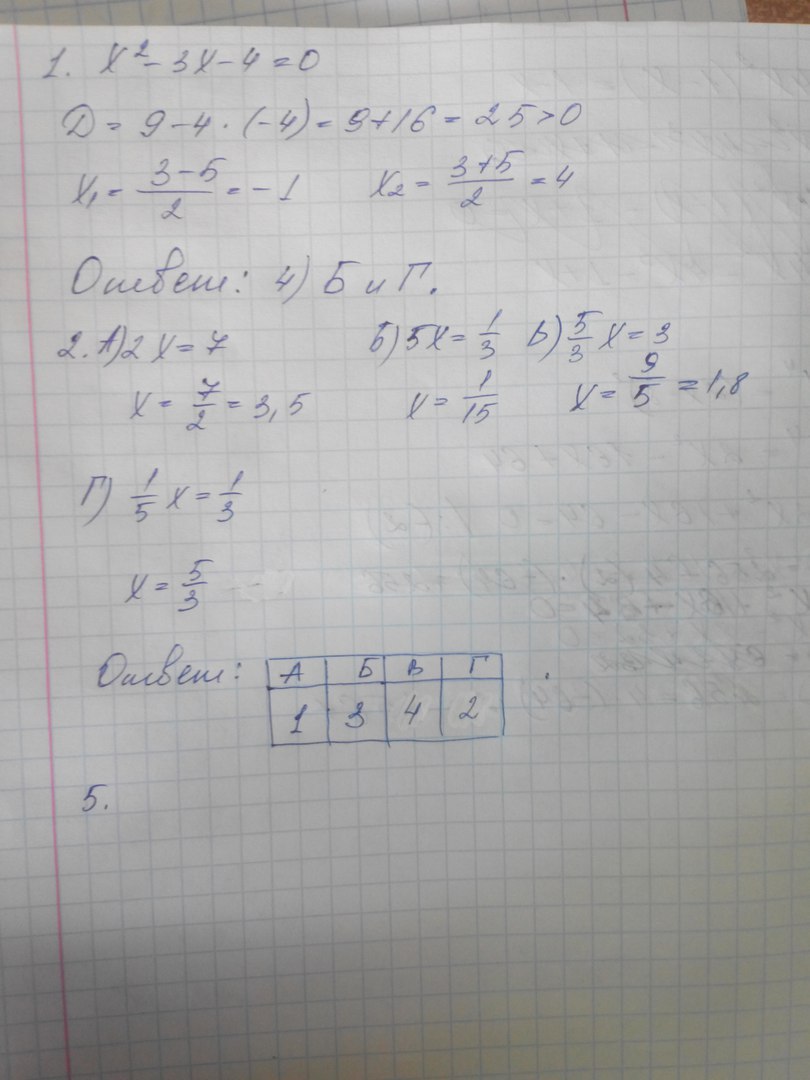 1. x² - 3x - 4 = 0
D = 9 - 4 · (-4) = 9 + 16 = 25 > 0
x₁ = (3-5)/2 = -1 x₂ = (3+5)/2 = 4
Ответ: 4) Б и Г.
2. А) 2x = 7 Б) 5x = 1/3 В) 5/3 x = 3
x = 7/2 = 3,5 x = 1/15 x = 9/5 = 1,8
Г) 1/5 x = 1/3
x = 5/3
Ответ: А Б В Г
1 3 4 2
5.